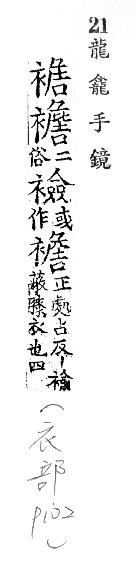 21 龍龕手鏡
二俗 或作 襜正處占反丨褕蔽膝衣也四
(衣部 p102)